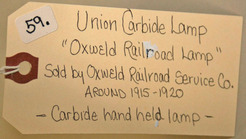 59.
Union Carbide Lamp
"Oxweld Railroad Lamp"
Sold by Oxweld Railroad Service Co.
AROUND 1915-1920
- Carbide hand held lamp -